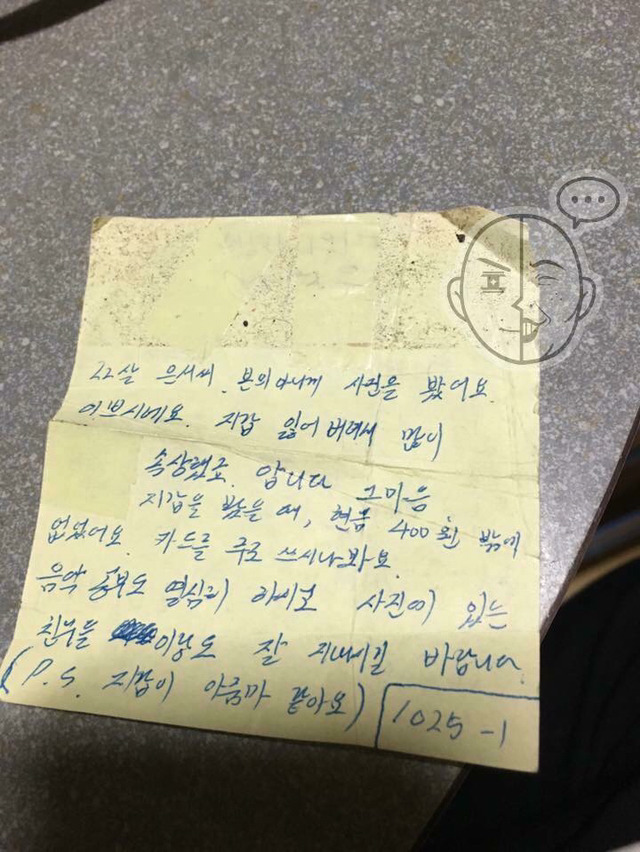 22살 은서씨. 본의아니게 사진을 봤어요.
이쁘시네요. 지갑 잃어버려서 많이
속상했죠. 압니다 그마음
지갑을 봤을 때, 현금 400원 밖에
없었어요. 카드를 주로 쓰시나봐요.
음악 공부도 열심히 하시고 사진에 있는
친구들 이랑도 잘 지내시길 바랍니다.
(P.S. 지갑이 아줌마 같아요)
1025-1